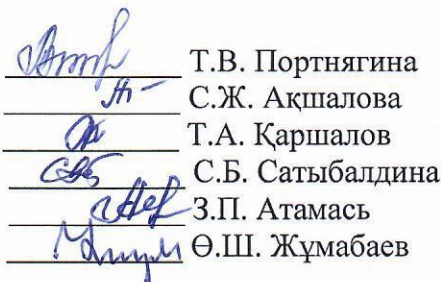 Т.В. Портнягина
С.Ж. Ақшалова
Т.А. Қаршалов
С.Б. Сатыбалдина
З.П. Атамась
Ө.Ш. Жұмабаев